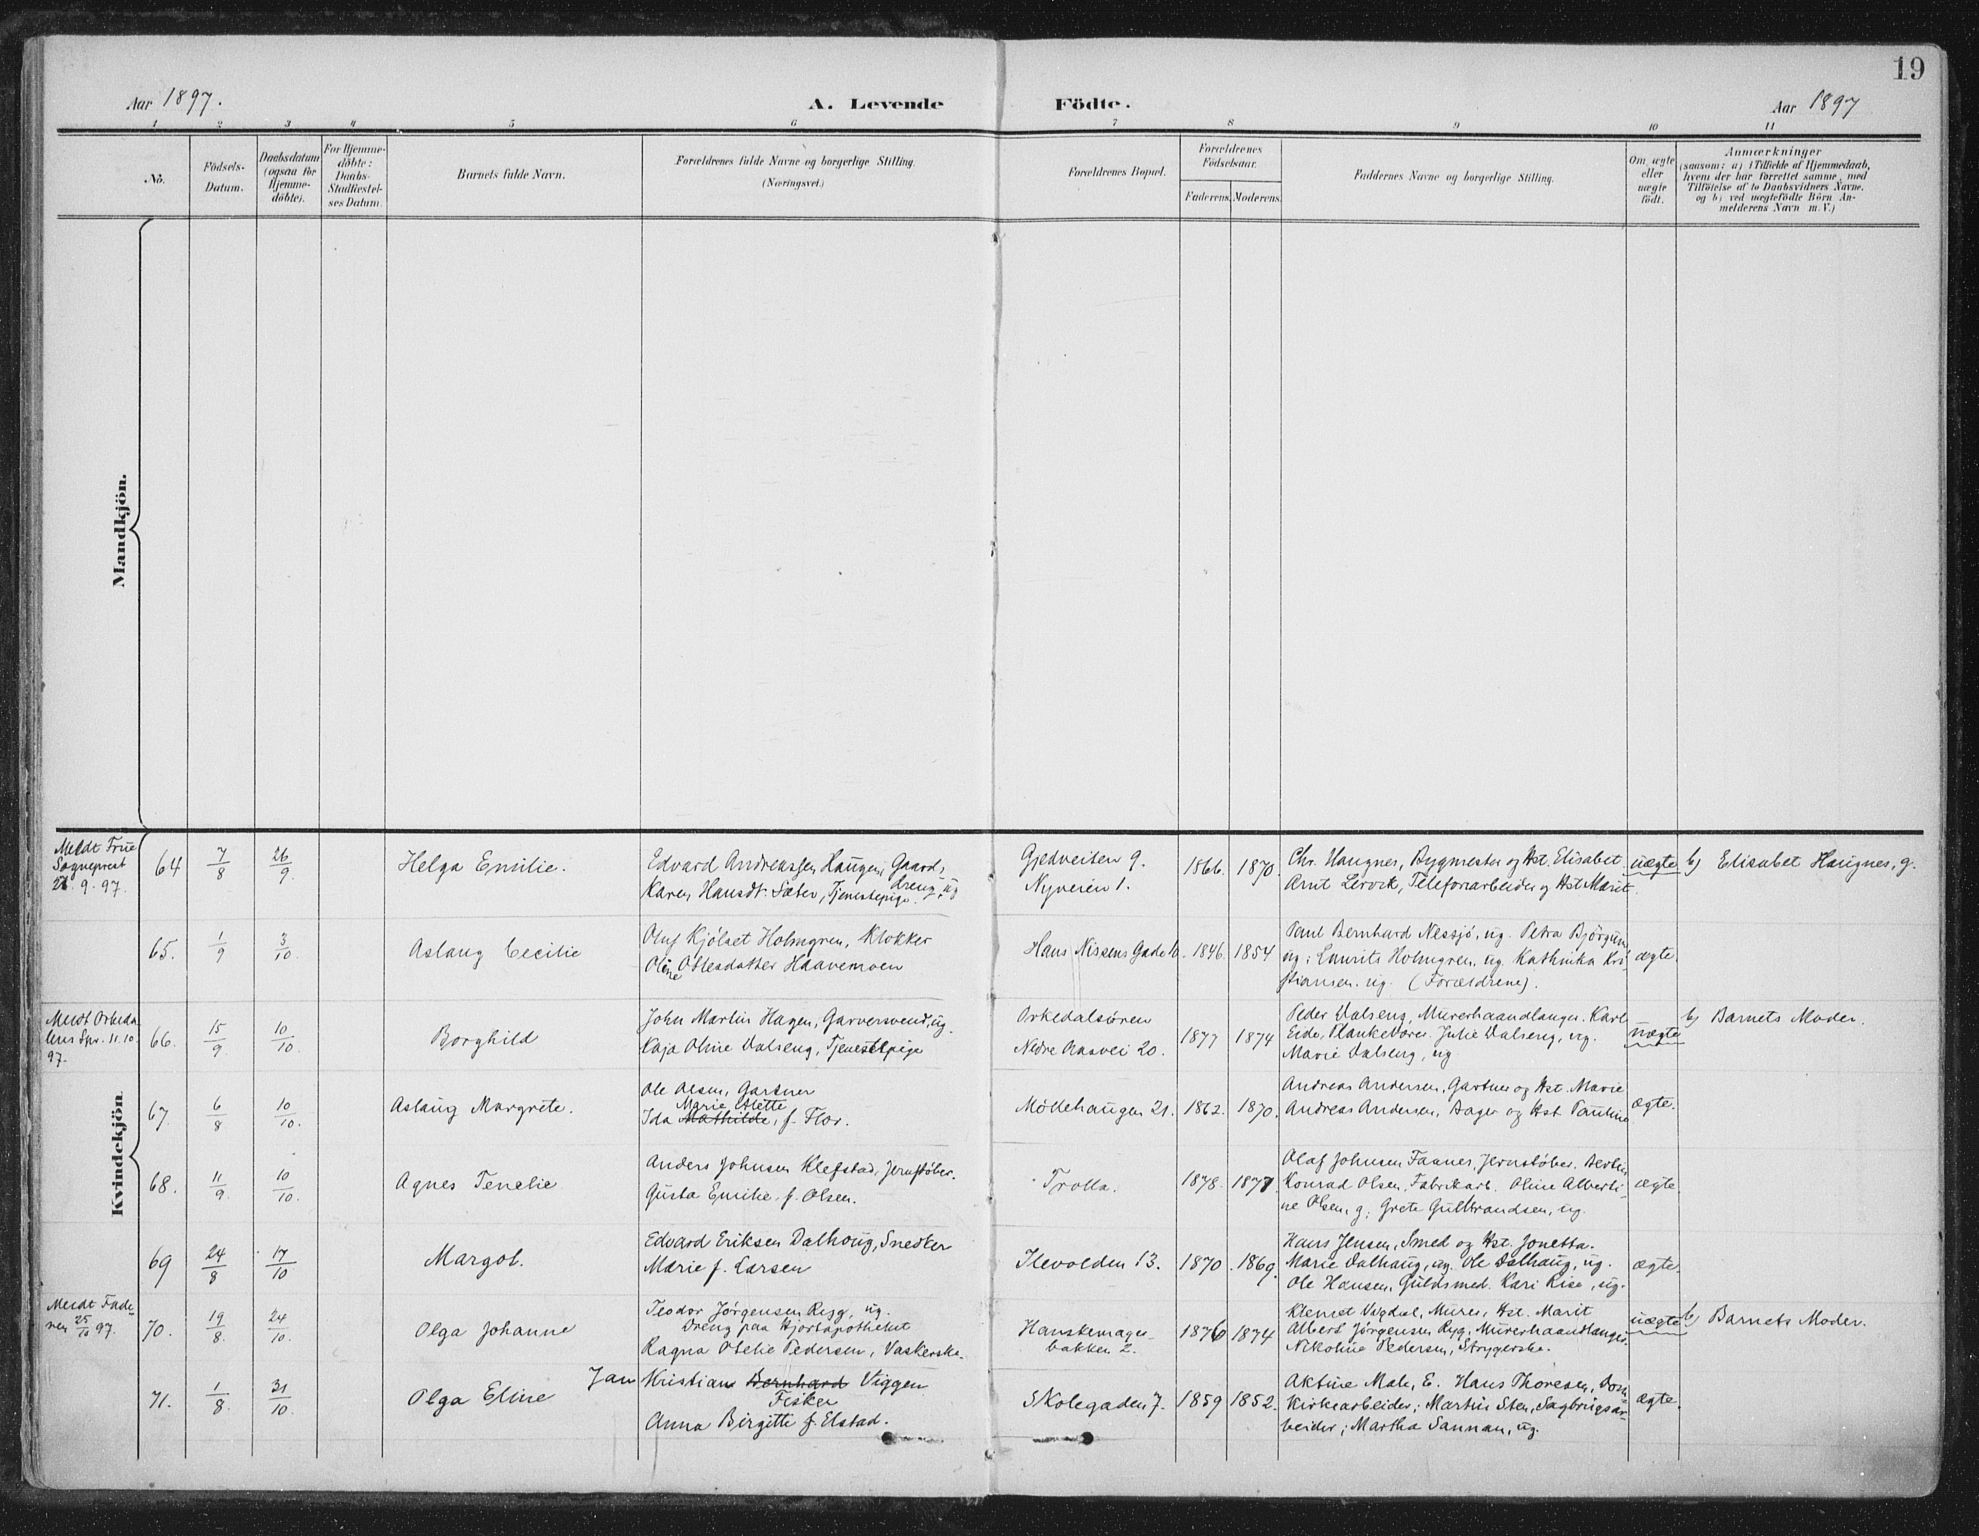 19
Aar 1897.
A. Levende
Födte.
Aar 1897
1 2 3 4 5 6 7 8 9 10 11
No.
Födsels-
Datum.
Daabsdatum
(ogsaa for
Hjemme-
döbte).
For Hjemme-
döbte:
Daabs-
Stadfæstel-
ses Datum.
Barnets fulde Navn.
Forældrenes fulde Navne og borgerlige Stilling.
(Næringsvei.)
Forældrenes Bopæl.
Forældrenes
Födselsaar.
Faderens. Moderens.
Faddernes Navne og borgerlige Stilling.
Om ægte
eller
uægte
födt.
Anmærkninger
(saasom: a) i Tilfælde af Hjemmedaab,
hvem der har forrettet samme, med
Tilföielse af to Daabsvidners Navne,
og b) ved uægtefödte Börn An-
melderens Navn m. V.)
Mandkjön.
Kvindekjön.
Meldt Frue
Sogneprest
9. 97.
64
7/8
26/9.
Helga Emilie.
Edvard Andreassen Haugen, Gaards-
dreng, ug
Karen Hansdt. Sæter, Tjenestepige.
Gjedveiten 9.
Nyveien 1.
1866. 1870.
Chr. Haugnes, Bygmester og Hst. Elisabet.
Arnt Lervik, Telefonarbeider og Hst Marit.
uægte
b) Elisabet Haugnes, g.
65.
1/9
3/10.
Aslaug Cecilie
Oluf Kjölset Holmgren, Klokker
Oline Ottesdatter Haavemoen
Hans Nissens Gade
1846. 1854
Paul Bernhard Nessjö, ug. Petra Björgum,
ug; Laurits Holmgren, ug. Kathinka Kri-
stiansen. ug. (Forældrene).
ægte.
Meldt Orkeda-
lens Spr. 11.10.
97.
66.
15/9
10/10.
Borghild
John Martin Hagen, Garversvend, ug.
Kaja Oline Dalseng, Tjenestepige
Orkedalsören
Nedre Aasvei 20.
1877 1874
Peder Dalseng, Murerhaandlanger. Karl
Eide, Plankebærer. Julie Dalseng, ug.
Marie Dalseng, ug
uægte
b) Barnets Moder.
67.
6/8
10/10.
Aslaug Margrete.
Ole Olsen, Gartner
Marie Alette
Ida Mathilde, f. Flor.
Möllehaugen 21.
1862. 1870.
Andreas Andersen, Gartner og Hst. Marie
Andreas Andersen, Bager og Hst Pauline
ægte.
68.
11/9.
10/10.
Agnes Tenelie
Anders Johnsen Klefstad, Jernstöber.
Gusta Emilie f. Olsen.
Trolla.
1878. 1877.
Olaf Johnsen Faanes, Jernstöber.
Konrad Olsen, Fabrikarb. Oline Alberti-
ne Olsen, g; Grete Gulbrandsen, ug.
ægte
69
24/8
17/10
Margot.
Edvard Eriksen Dalhoug, Snedker
Marie f. Larsen
Ilevolden 13.
1870. 1869.
Hans Jensen, Smed og Hst. Jonetta.
Marie Dalhaug, ug. Ole Dalhaug, ug.
Ole Hansen, Guldsmed. Kari Rise, ug.
ægte.
Meldt Fade-
ren 25/10 97.
70.
19/8.
24/10.
Olga Johanne
Teodor Jörgensen Ryg, ug.
Dreng paa Hjorteapotheket
Ragna Otelie Pedersen, Vaskerske.
Hanskemager-
bakken 2.
1876 1874
Klemet Vagdal, Murer, Hst. Marit
Albert Jörgensen Ryg, Murerhaandlanger.
Nikoline Pedersen, Strygerske.
uægte
b) Barnets Moder.
71.
1/8.
31/10.
Olga Eline
Jan Kristian Bernhard Viggen
Fisker
Anna Birgitte f. Elstad.
Skolegaden 7.
1859 1852.
Aktine Male, E. Hans Thoresen, Dom-
kirkearbeider; Martin Sten, Sagbrugsar-
beider; Martha Sannan, ug.
ægte.